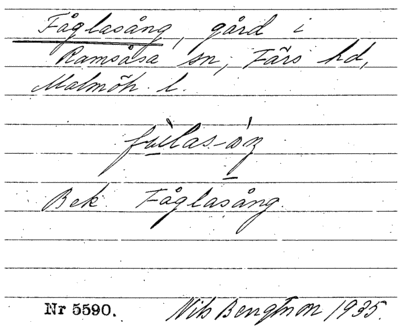 Fåglasång, gård i
Ramsåsa sn, Färs hd,
Malmöh. l.
Bek. Fåglasång.
Nr 5590. Nils Bengtsson 1935.